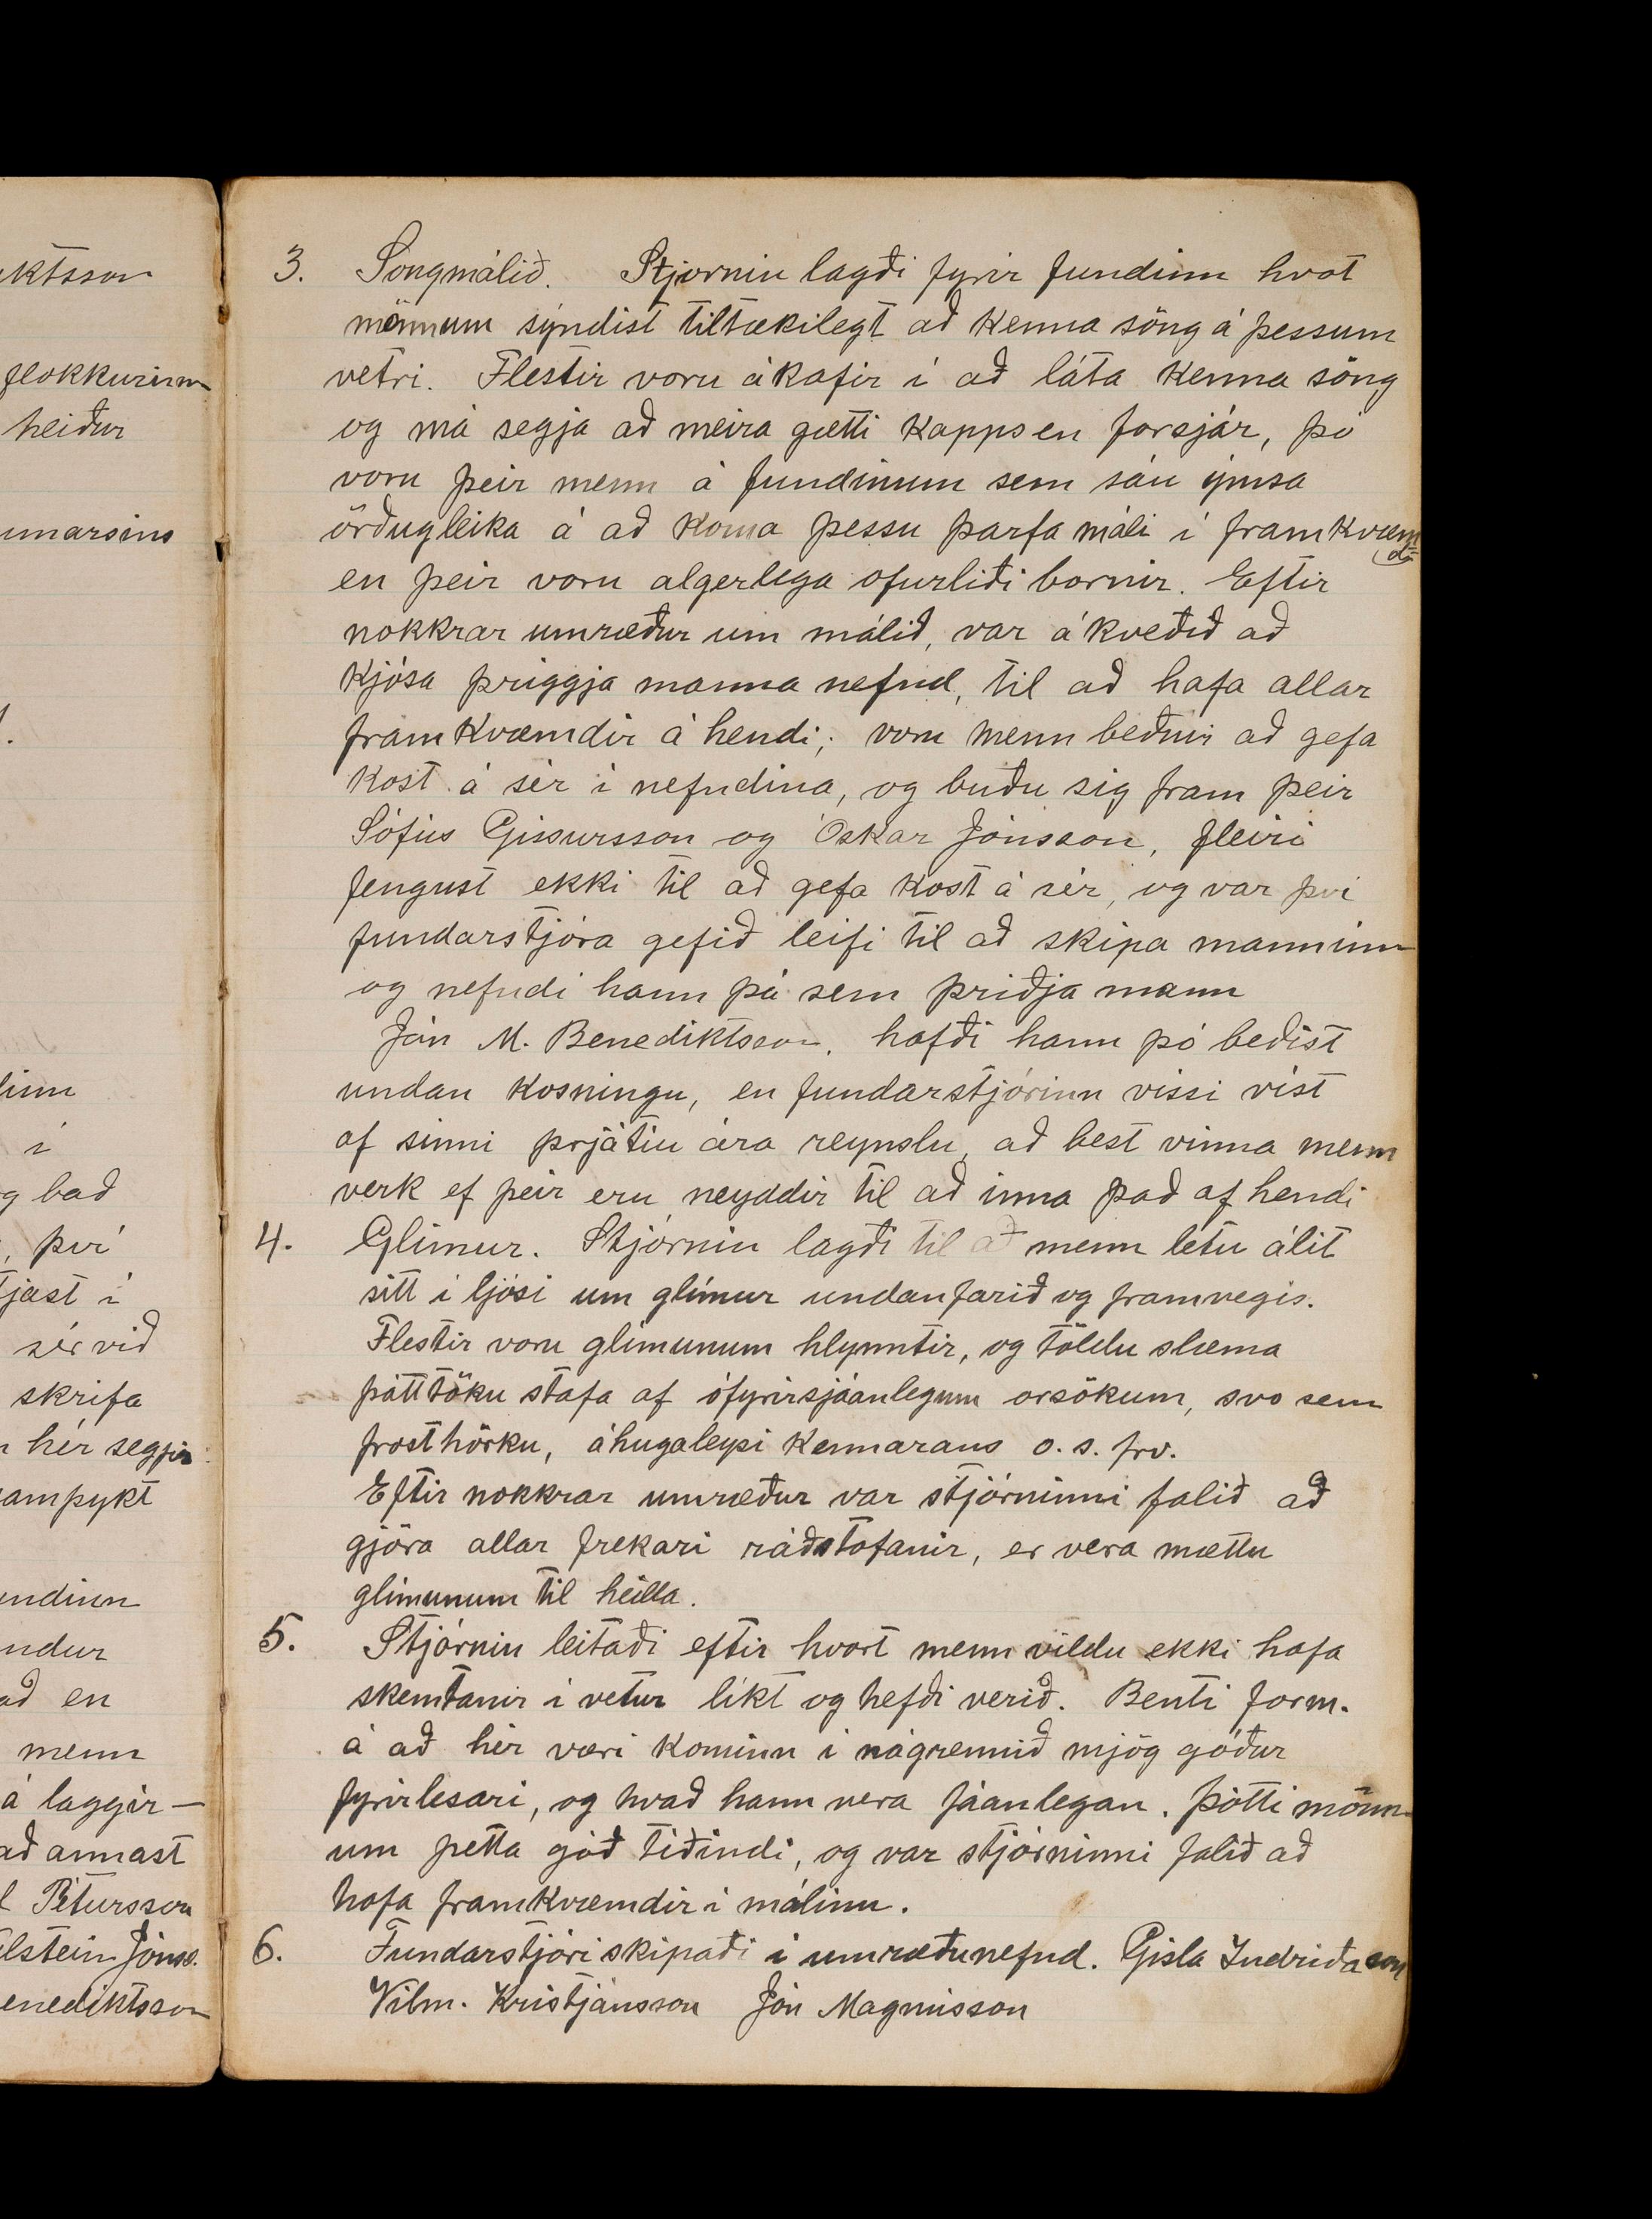 ktsson
flokkurinn
heiður
umarsins
linn
í
g bað
, því
tjast í
sér við
skrifa
hér segjir
ampykt
undinn
ndur
að en
menn
á laggir -
að annast
l Pétursson
lstein Jónss.
enediktsson
3. Söngmálið. Stjórnin lagði fyrir fundinn hvot
mönnum sýndist tiltækilegt að kenna söng á þessum
vetri. Flestir voru ákafir í að láta kenna söng
og má segja að meira gætti kapps en forsjár, þó
voru þeir menn á fundinum sem sáu ýmsa
örðugleika á að koma þessu þarfa máli í framkvæmd
en þeir voru algerlega ofurliði bornir. Eftir
nokkrar umræður um málið, var ákveðið að
kjósa þriggja manna nefnd, til að hafa allar
framkvæmdir á hendi; voru menn beðnir að gefa
kost á sér í nefndina, og buðu sig fram þeir
Sófus Gissursson og Óskar Jónsson, fleiri
fengust ekki til að gefa kost á sér, og var því
fundarstjóra gefið leifi til að skipa manninn
og nefndi hann þá sem þriðja mann
Jón M. Benediktsson. hafði hann þó beðist
undan kosningu, en fundarstjórinn vissi víst
af sinni þrjátíu ára reynslu, að best vinna menn
verk ef þeir eru neyddir til að inna það af hendi
4. Glímur. Stjórnin lagði til að menn létu álit
sitt í ljósi um glímur undanfarið og framvegis.
Flestir voru glímunum hlynntir, og töldu slæma
þátttöku stafa af ófyrirsjáanlegum orsökum, svo sem
frosthörku, áhugaleysi kennarans o. s. frv.
Eftir nokkrar umræður var stjórninni falið að
gjöra allar frekari ráðstafanir, er vera mættu
glímunum til heilla.
5. Stjórnin leitaði eftir hvort menn vildu ekki hafa
skemtanir í vetur líkt og hefði verið. Benti form.
á að hér væri kominn í nágrennið mjög góður
fyrirlesari, og kvað hann vera fáanlegan. Þótti mönn-
um þetta góð tíðindi, og var stjórninni falið að
hafa framkvæmdir í málinu.
6. Fundarstjóri skipaði í umræðunefnd. Gísla Indriðason
Vilm. Kristjánsson Jón Magnússon